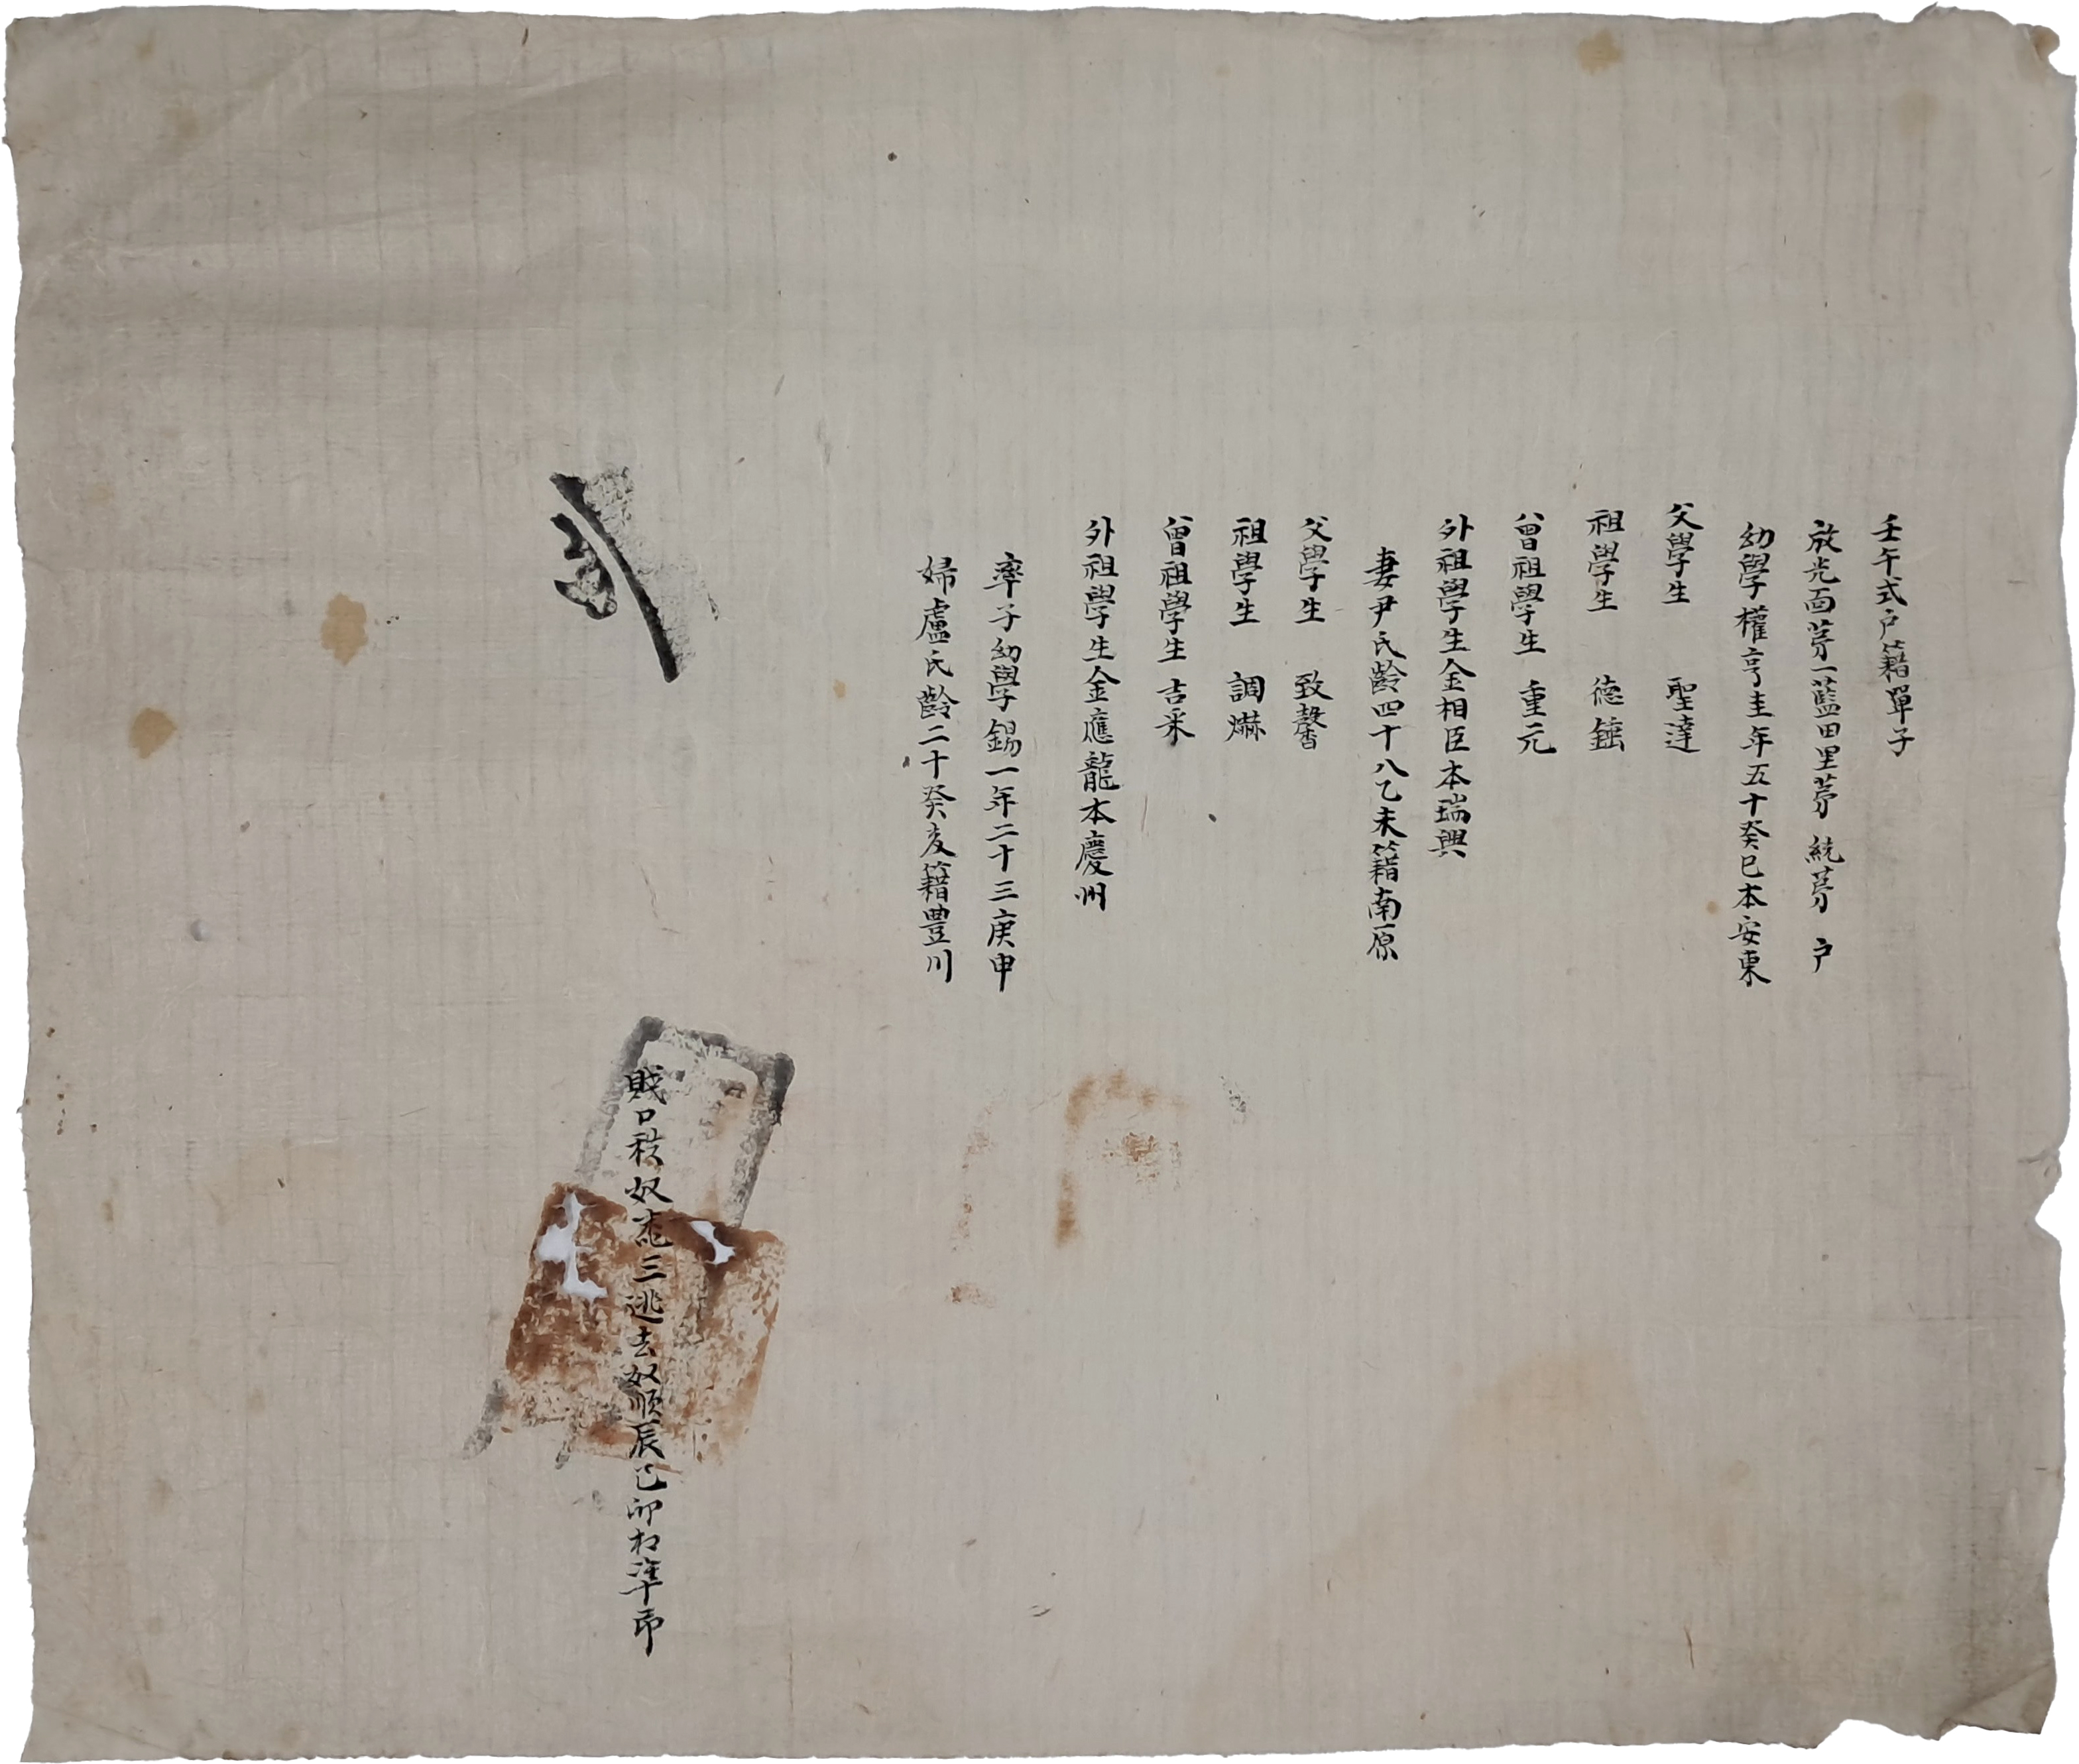 壬午式戶籍單子
放光面第一藍田里第 統第 戶
幼學權亨圭年五十癸巳本安東
父學生 聖達
祖學生 德
曾祖學生 重元
外祖學生金相臣本瑞興
妻尹氏齡四十八乙未籍南原
父學生 致馨
祖學生 調爀
曾祖學生 吉采
外祖學生金應龍本慶州
率子幼學錫一年二十三庚申
婦盧氏齡二十癸亥籍豊川
賤口秩奴 三逃去奴順辰己卯相準印